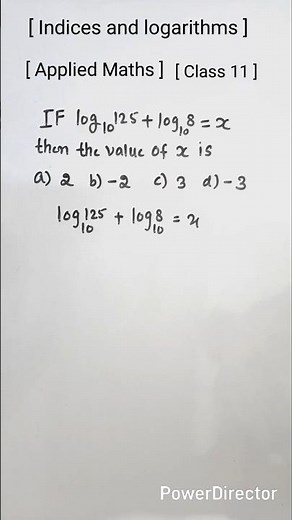 [ Indices and logarithms ]
[ Applied Maths ] [ Class 11 ]
IF log₁₀125 + log₁₀8 = x
then the value of x is
a) 2 b) -2 c) 3 d) -3
log₁₀125 + log₁₀8 = x
PowerDirector